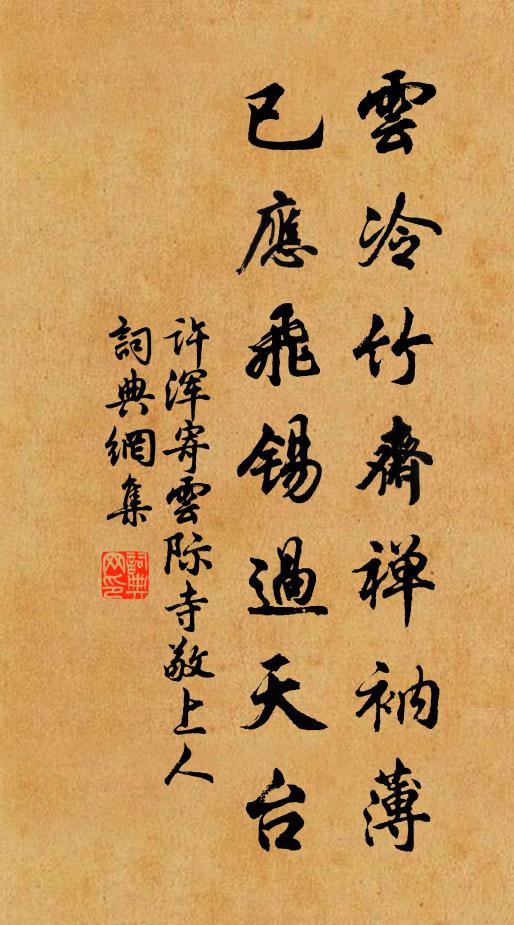 雲冷竹齋禅衲薄
已應飛錫過天台
许浑寄雲际寺敬上人
詞典網集
詞典
网印